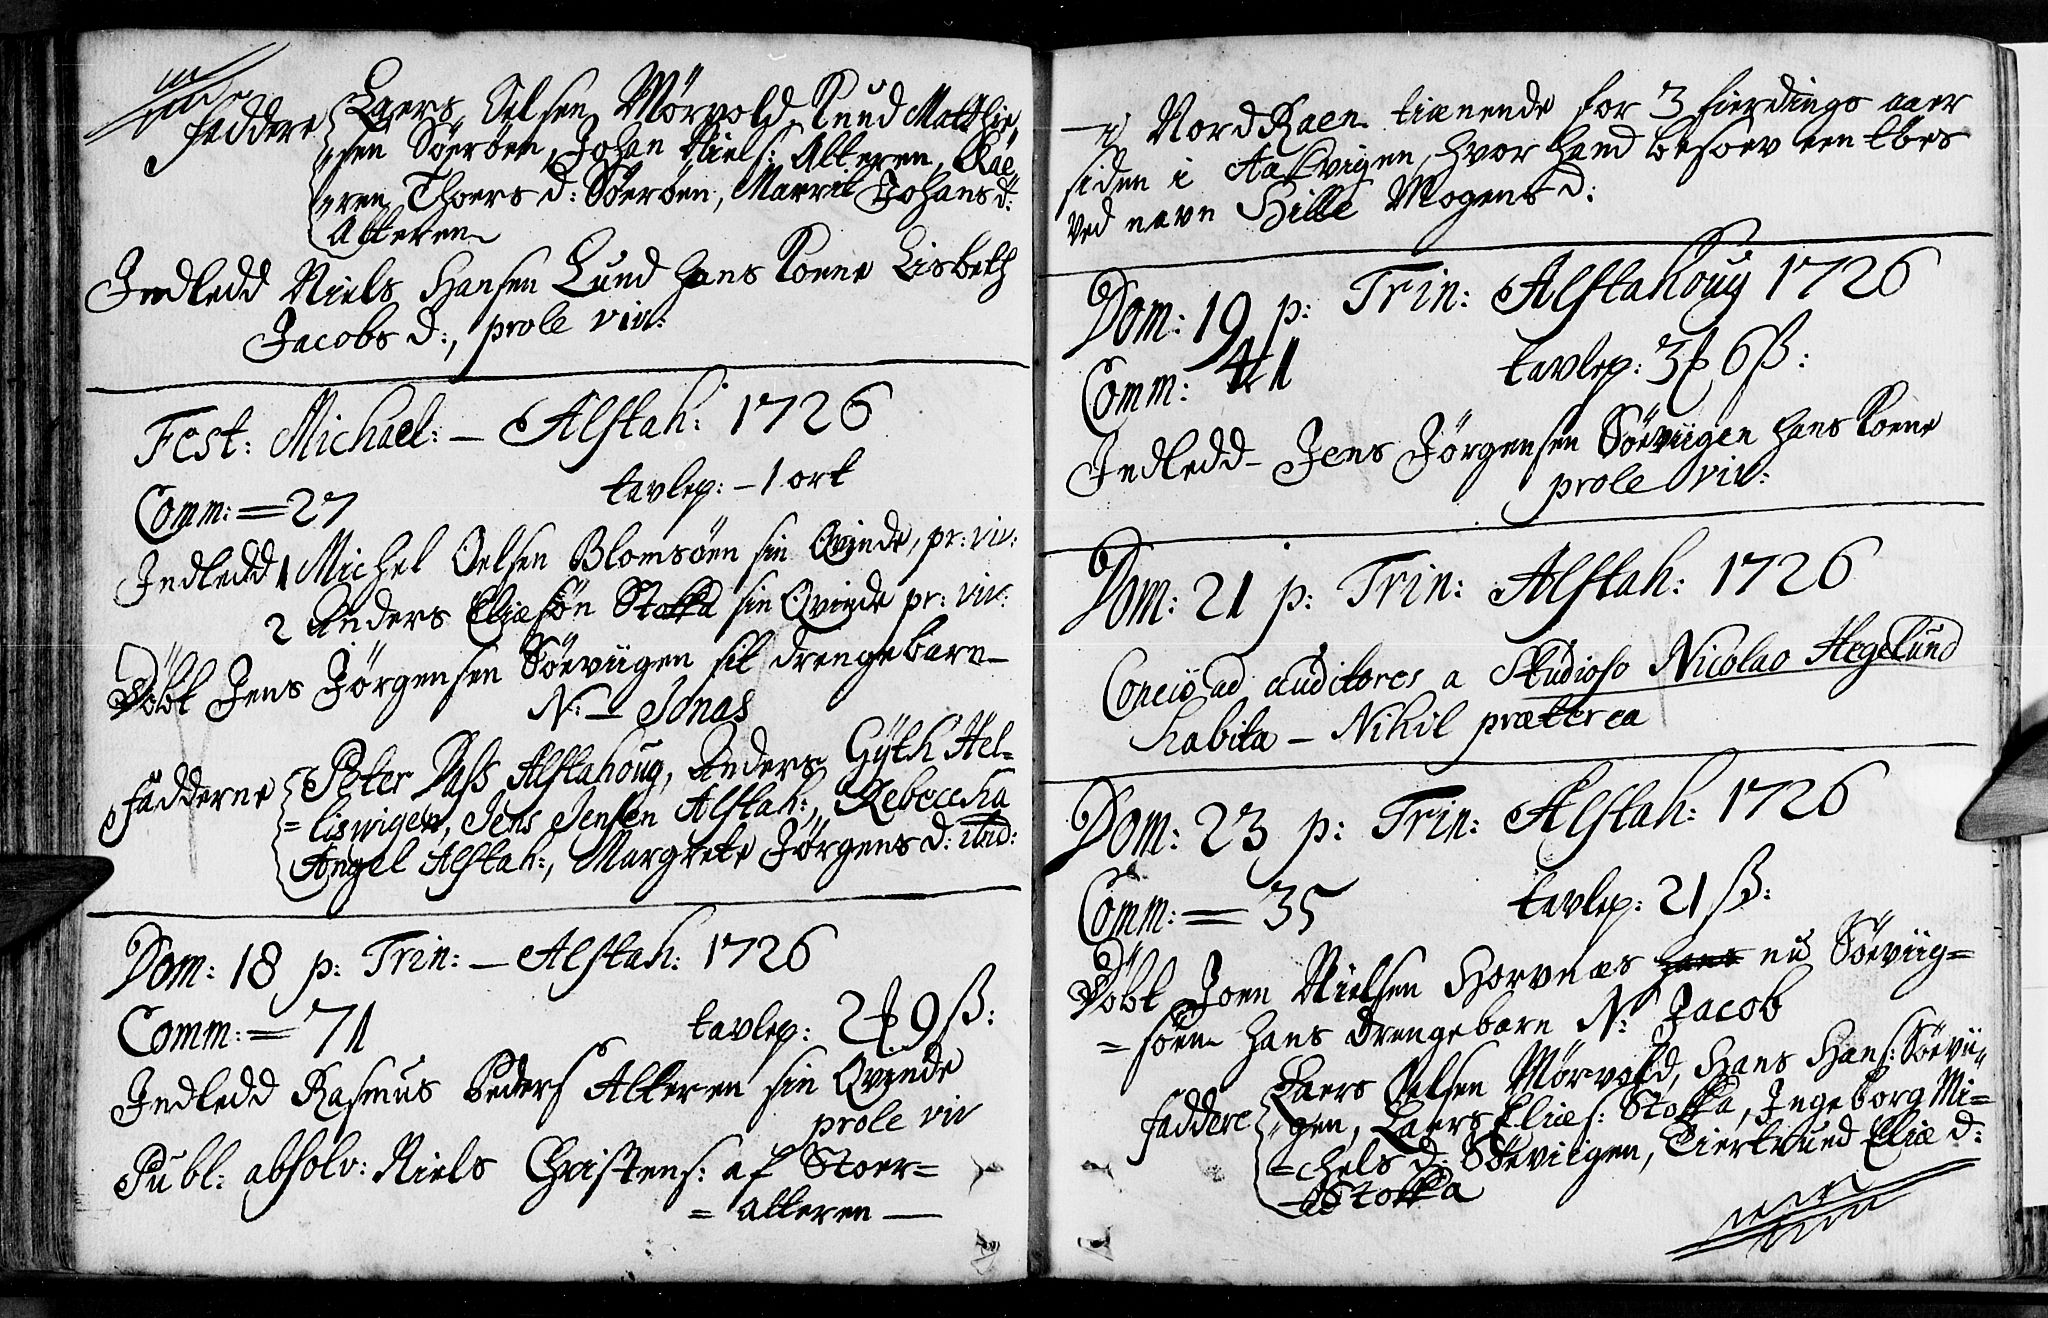 Faddere Laers Oelsen Mørvold, Knud Matthie
sen Søerøen, Johan Niels: Alteren, Kae
ren Thoers d: Søerøen, Marrit Johans d:
Alteren
Indledd Niels Hansen Lund hans Kone Lisbeth
Jacobs d:, prole viv:
Fest: Michael: – Alstah: 1726
Comm: = 27 tavlep: – 1 ort
Indledd 1 Michel Oelsen Blomsøen sin Qvinde, pr: viv:
2 Anders Eliæsøn Stokka sin Qvinde pr: viv:
Døbt Jens Jørgensen Søeviigen sit drengebarn –
N: – Jonas
Fadderne Peter Dass Alstahoug, Anders Gÿth Hel-
= lisvigen, Jens Jensen Alstah:, Rebeccha
Angel Alstah:, Margrete Jørgens d: ibid:
Dom: 18 p: Trin: – Alstah: 1726
Comm: = 71 tavlep: 2 9 ß:
Indledd Rasmus Peders Alteren sin Qvinde
prole viv
Publ: absolv: Niels Christens: af Stoer =
= alteren —
i Nord Raen tienende for 3 fierdings aaer
siden i Aaskvigen, hvor hand besoev een tøes
ved navn Hille Mogens d:
Dom: 19 p: Trin: Alstahoug 1726
Comm: 41 tavlep: 3 6 ß:
Indledd – Jens Jørgensen Søeviigen hans Kone
prole viv:
Dom: 21 p: Trin: Alstah: 1726
Concio ad auditores a Studioso Nicolao Hegelund
habita – Nihil præterea
Dom: 23 p: Trin: Alstah: 1726
Comm: = 35 tavlep: 21 ß:
Døbt Joen Nielsen Horvnæs hans nu Søeviig =
= søen hans drengebarn N: Jacob
Faddere Laers Oelsen Mørvold, Hans Hans: Søevii
gen, Laers Eliæs: Stokka, Ingeborg Mi =
= chels d: Søeviigen, Siertrued Eliæ d:
Stokka